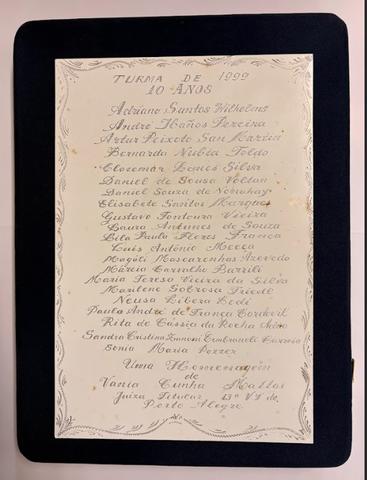 TURMA DE 1999
10 ANOS
Adriano Santos Wilhelms
André Ibaños Pereira
Artur Peixoto San Martin
Bernarda Núbia Toldo
Cleremar Lemes Silva
Daniel de Sousa Voltan
Daniel Souza de Nonohay
Elisabete Santos Marques
Gustavo Fontoura Vieira
Laura Antunes de Souza
Lila Paula Flores França
Luis Antônio Mecca
Magáli Mascarenhas Azevedo
Márcia Carvalho Barrili
Maria Teresa Vieira da Silva
Marilene Sobrosa Friedl
Neusa Líbera Lodi
Paulo André de França Cordovil
Rita de Cássia da Rocha
Sandra Cristina
Sonia Maria Pozzer
Uma Homenagem
de
Vania Cunha Mattos
Juíza Titular 13ª VT de
Porto Alegre